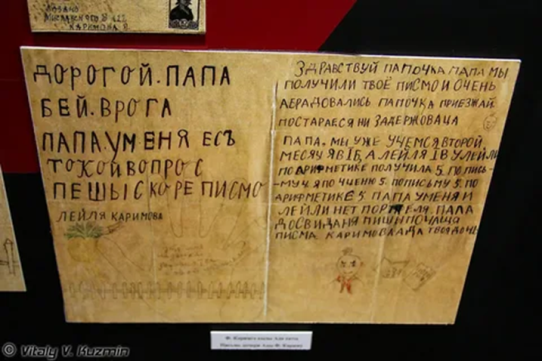 КАРИМОВА
ДОРОГОЙ. ПАПА
БЕЙ. ВРОГА
ПАПА. УМЕНЯ ЕСЪ
ТОКОЙ ВОПРОС
ПЕШЫ СКОРЕ ПИСМО
ЛЕЙЛЯ КАРИМОВА
ЗДРАВСТВУЙ ПАПОЧКА ПАПА МЫ
ПОЛУЧИЛИ ТВОЁ ПИСМО И ОЧЕНЬ
АБРАДОВАЛИСЬ ПАПОЧКА ПРИЕЗЖАЙ
ПОСТАРАЕСЯ НИ ЗАДЕРЖОВАЧА
ПАПА. МЫ УЖЕ УЧЕМСЯ ВТОРОЙ
МЕСЯЧ Я В 1Б, А ЛЕЙЛЯ 1В У ЛЕЙЛИ
ПО АРИФМЕТИКЕ ПОЛУЧИЛА 5. ПО ПИСЬ-
МУ 4 Я ПО ЧТЕНИЮ 5 ПО ПИСЬМУ 5. ПО
АРИФМЕТИКЕ 5 ПАПА УМЕНЯ И
ЛЕЙЛИ НЕТ ПАПА
ДОСВИДАНЯ ПИШЫ
ПИСМА КАРИМОВА АДА ТВОЯ ДОЧЬ
© Vitaly V. Kuzmin